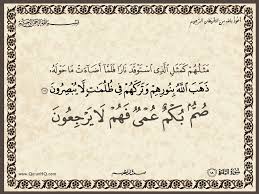 أعوذ بالله من الشيطان الرجيم
مَثَلُهُمْ كَمَثَلِ الَّذِي اسْتَوْقَدَ نَارًا فَلَمَّا أَضَاءَتْ مَا حَوْلَهُ
ذَهَبَ اللَّهُ بِنُورِهِمْ وَتَرَكَهُمْ فِي ظُلُمَاتٍ لَّا يُبْصِرُونَ
صُمٌّ بُكْمٌ عُمْيٌ فَهُمْ لَا يَرْجِعُونَ